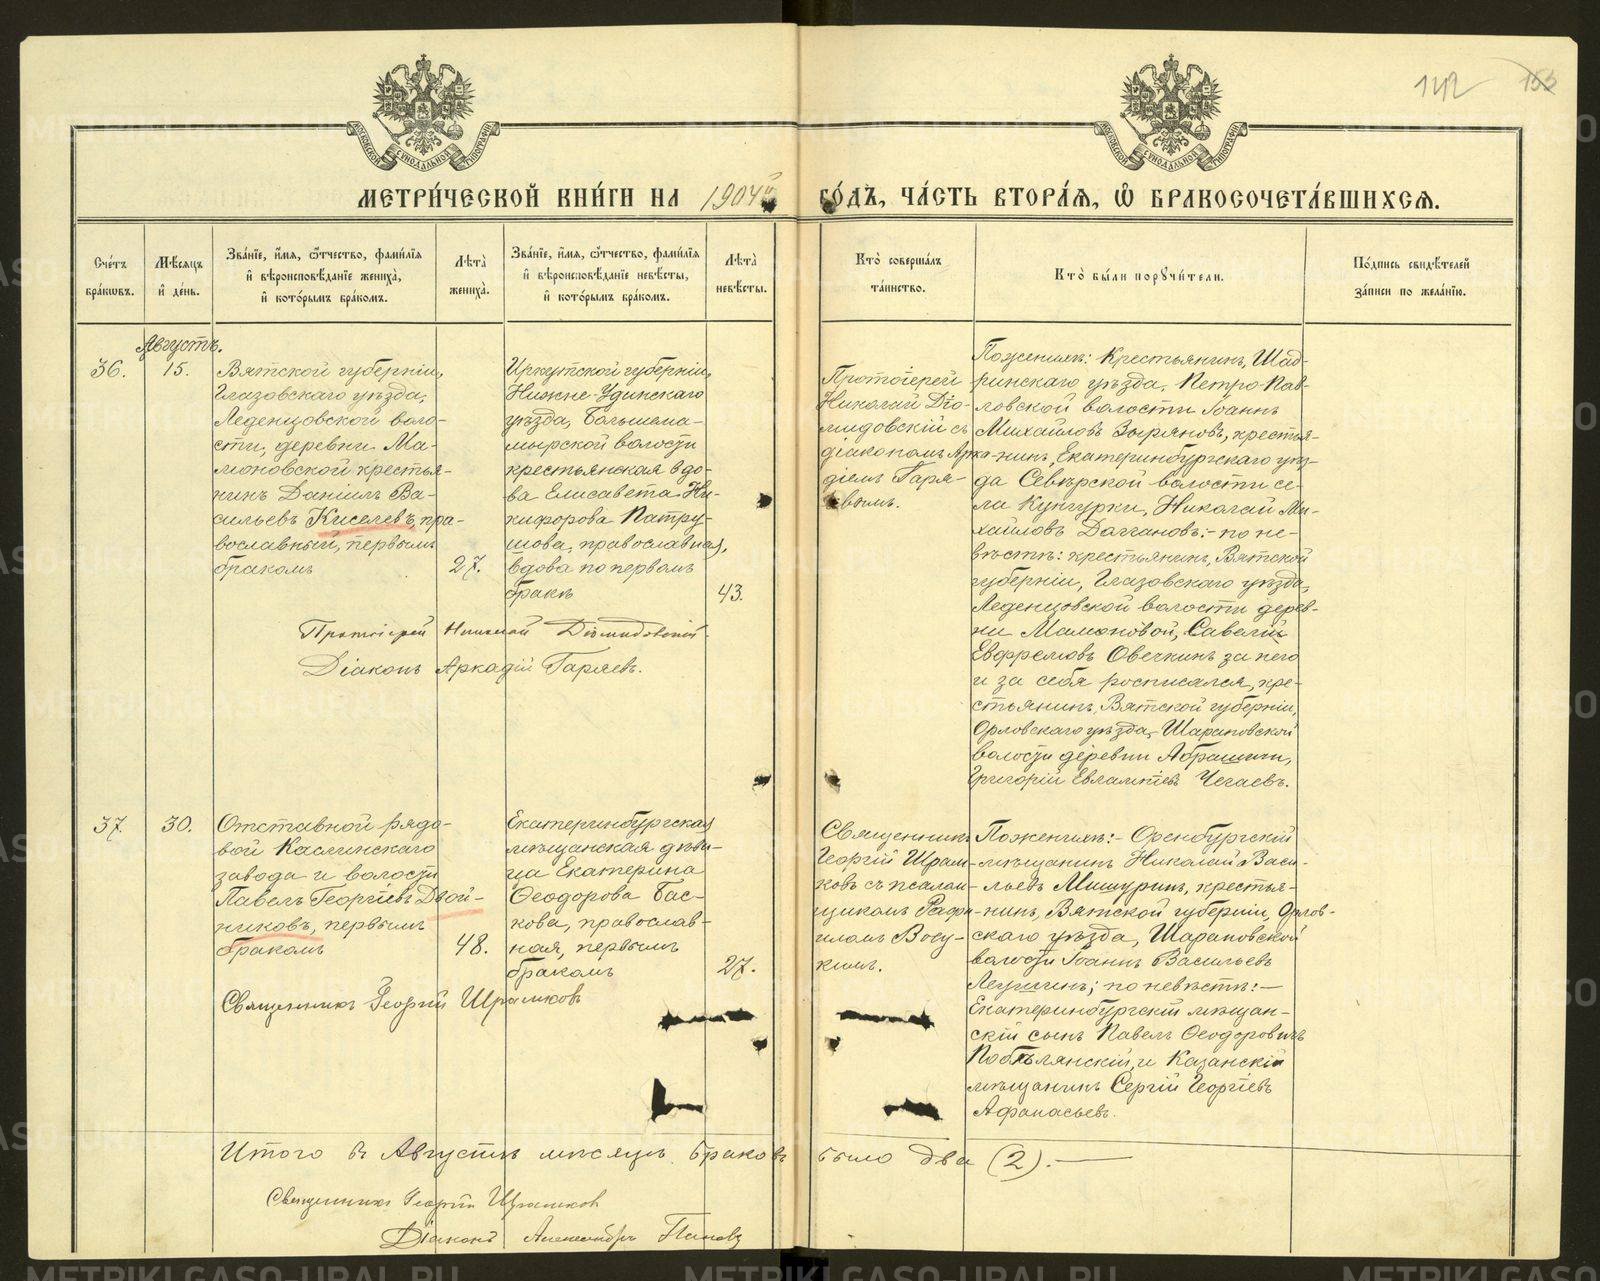 142 153
МЕТРИ́ЧЕСКОЙ КНИ́ГИ НА 1904й ГО́ДЪ, ЧА́СТЬ ВТОРА́Я, Ѡ БРАКОСОЧЕТА́ВШИХСЯ.
Сче́тъ бра́кωвъ.
Мѣ́сяцъ и҆ де́нь.
Зва́нїе, и҆́мя, ѻ҆́тчество, фами́лїя и҆ вѣроисповѣ́данїе жениха̀, и҆ кото́рымъ бра́комъ.
Лѣ́та жениха̀.
Зва́нїе, и҆́мя, ѻ҆́тчество, фами́лїя и҆ вѣроисповѣ́данїе невѣ́сты, и҆ кото́рымъ бра́комъ.
Лѣ́та невѣ́сты.
Кто̀ соверша́лъ та́инство.
Кто̀ бы́ли порꙋчи́тели.
По́дпись свидѣ́телей за́писи по жела́нїю.
Августъ.
36.
15.
Вятской губерніи,
Глазовскаго уѣзда,
Леденцовской воло-
сти, деревни Ма-
моновской крестья-
нинъ Даніилъ Ва-
сильевъ Киселевъ, пра-
вославный, первымъ
бракомъ
27.
Иркутской губерніи,
Нижне-Удинскаго
уѣзда, Большема-
мырской волости
крестьянская вдо-
ва Елисавета Ни-
кифорова Патру-
шова, православная,
вдова по первомъ
бракѣ
43.
Протоіерей
Николай Діо-
мидовскій съ
діакономъ Арка-
діемъ Гаря-
евымъ.
По женихѣ: Крестьянинъ, Шад-
ринскаго уѣзда, Петро-Пав-
ловской волости Іоаннъ
Михайловъ Зыряновъ, крестья-
нинъ, Екатеринбургскаго уѣз-
да Сѣверской волости се-
ла Кунгурки, Николай Ми-
хайловъ :- по не-
вѣстѣ: крестьянинъ, Вятской
губерніи, Глазовскаго уѣзда,
Леденцовской волости дерев-
ни Мамоновой, Савелій
Евфремовъ Овечкинъ за него
и за себя росписался, кре-
стьянинъ, Вятской губерніи,
Орловскаго уѣзда, Шараповской
волости деревни Абрашини,
Григорій Евлампіевъ Чегаевъ.
Протоіерей Николай Діомидовскій
Діаконъ Аркадій Гаряевъ.
37.
30.
Отставной рядо-
вой Каслинскаго
завода и волости
Павелъ Георгіевъ Двой-
никовъ, первымъ
бракомъ
48.
Екатеринбургская
мѣщанская дѣви-
ца Екатерина
Ѳеодорова Бас-
кова, православ-
ная, первымъ
бракомъ
27.
Священникъ
Георгій Шрам-
ковъ съ псалом-
щикомъ Рафа-
иломъ
кимъ.
По женихѣ:- Оренбургскій
мѣщанинъ Николай Васи-
льевъ Мишуринъ, крестья-
нинъ, Вятской губерніи, Орлов-
скаго уѣзда, Шараповской
волости Іоаннъ Васильевъ
; по невѣстѣ:-
Екатеринбургскій мѣщан-
скій сынъ Павелъ Ѳеодоровичъ
и Казанскій
мѣщанинъ Сергій Георгіевъ
Афанасьевъ.
Священникъ Георгій Шрамковъ
Итого въ Августѣ мѣсяцѣ браковъ было два (2).
Священникъ Георгій Шрамковъ
Діаконъ Александръ Поповъ
METRIKI.GASO-URAL.RU